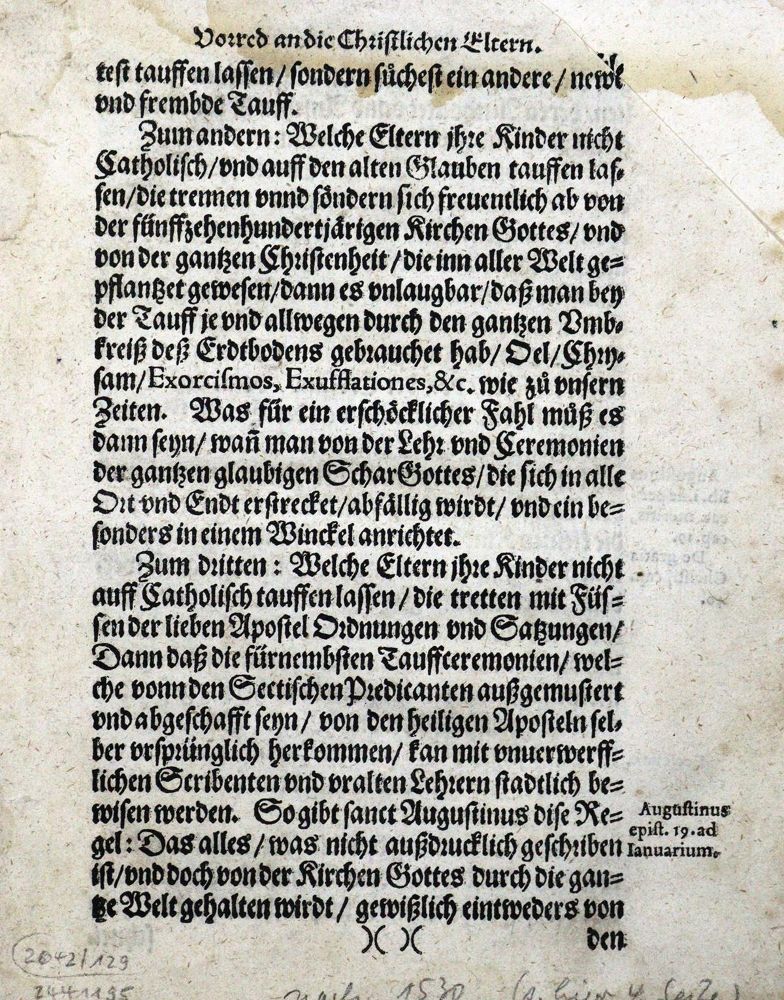 Vorred an die Christlichen Eltern.
test tauffen lassen / sondern sůchest ein andere / newe
vnd frembde Tauff.
Zum andern: Welche Eltern jhre Kinder nicht
Catholisch/vnd auff den alten Glauben tauffen las-
sen/die trennen vnnd söndern sich freuentlich ab von
der fünffzehenhundertjärigen Kirchen Gottes/ vnd
von der gantzen Christenheit /die inn aller Welt ge-
pflantzet gewesen/dann es vnlaugbar/daß man bey
der Tauff je vnd allwegen durch den gantzen Vmb-
kreiß deß Erdtbodens gebrauchet hab/ Oel/Chry-
sam/Exorcismos, Exufflationes,&c. wie zů vnsern
Zeiten. Was für ein erschöcklicher Fahl müß es
dann seyn/ wañ man von der Lehr vnd Ceremonien
der gantzen glaubigen Schar Gottes/die sich in alle
Ort vnd Endt erstrecket/abfällig wirdt/ vnd ein be-
sonders in einem Winckel anrichtet.
Zum dritten : Welche Eltern jhre Kinder nicht
auff Catholisch tauffen lassen / die tretten mit Füs-
sen der lieben Apostel Ordnungen vnd Satzungen/
Dann daß die fürnembsten Tauffceremonien/ wel-
che vonn den Sectischen Predicanten außgemustert
vnd abgeschafft seyn / von den heiligen Aposteln sel-
ber vrsprünglich herkommen/ kan mit vnuerwerff-
lichen Scribenten vnd vralten Lehrern stadtlich be-
wisen werden. So gibt sanct Augustinus dise Re-
gel: Das alles / was nicht außdrucklich geschriben
ist/vnd doch von der Kirchen Gottes durch die gan-
tze Welt gehalten wirdt / gewißlich eintweders von
den
Augustinus
epist. 19. ad
Ianuarium.
2042/129
2441195
nach 1530